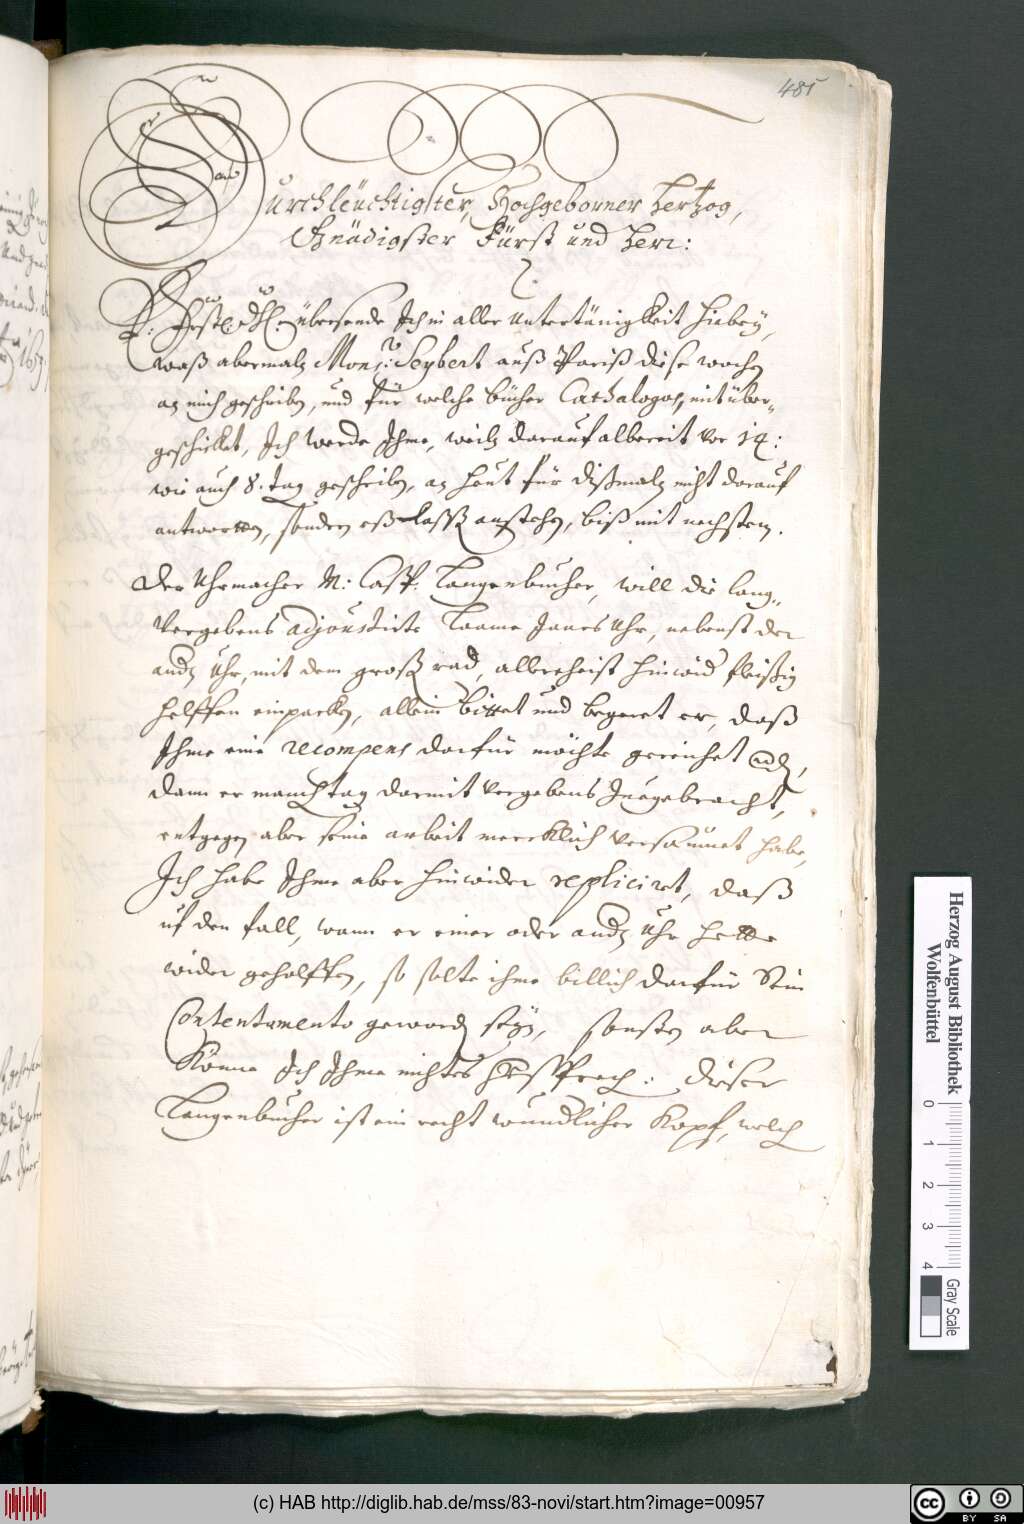 485
Durchleüchtigster, Hochgeborner Hertzog,
Gnädigster Fürst und Herr:
E: Fürstl: Dhl: übersende Ich in aller Untertänigkeit hiebey,
waß abermalz Mons: Seybert auß Pariß dise wochen
an mich geschriben, und für welche bücher Cathalogos, mit über-
geschicket, Ich werde Ihme, weilz darauf albereit vor 14:
wie auch 8. tag geschriben, an heut für dißmalz nicht darauf
antwortten, sondern eß laßß anstehen, biß mit nechstem.
Der Uhrmacher M: Casp: Langenbucher, will die lang-
vergebens adjoustirte Laame Janes Uhr, nebenst der
andn Uhr, mit dem groß rad, allerheist hinwid fleißig
helffen einpacken, allein bittet und begeret er, daß
Ihme eine recompens darfür möchte gereichet wdn,
dann er manch tag darmit vergebens Zuegebracht,
entgegen aber seine arbeit mercklich versaumet habe,
Ich habe Ihme aber hinwider repliciret, daß
uf den fall, wann er einer oder andn Uhr hette
wider geholffen, so solte ihme billich darfür Sein
Contentamento geworden seyn, sonsten aber
könne Ich Ihme nichtes versprech: Dieser
Langenbucher ist ein recht wundlicher Kopf, welch
Herzog August Bibliothek
Wolfenbüttel
0 1 2 3 4
Gray Scale
(c) HAB http://diglib.hab.de/mss/83-novi/start.htm?image=00957
cc BY SA